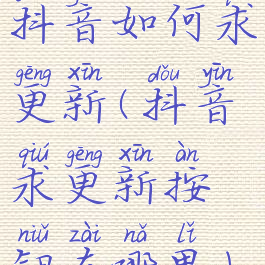 抖音如何求
gēng xīn dǒu yīn
更新(抖音
qiú gēng xīn àn
求更新按
niǔ zài nǎ lǐ
钮在哪里)